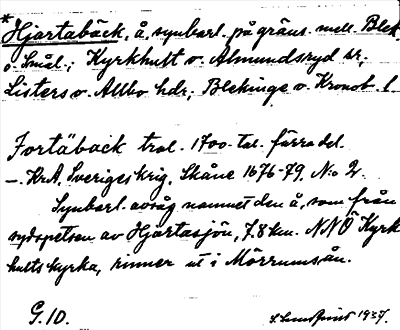 *Hjartabäck, å, synbarl. på gräns. mell. Blek.
o. Smål.; Kyrkhult o. Almundsryd sr,
Listers o. Allbo hdr; Blekinge o. Kronob. l.
Fortäback trol. 1700-tal. färradel.
–. KrA, Sveriges krig, Skåne 1676-79, N:o 2.
Synbarl. avsåg namnet den å, som från
sydspetsen av Hjärtasjön, 7.8 km. NNÖ Kyrk
hults kyrka, rinner ut i Mörrumsån.
G. ID.
1937.